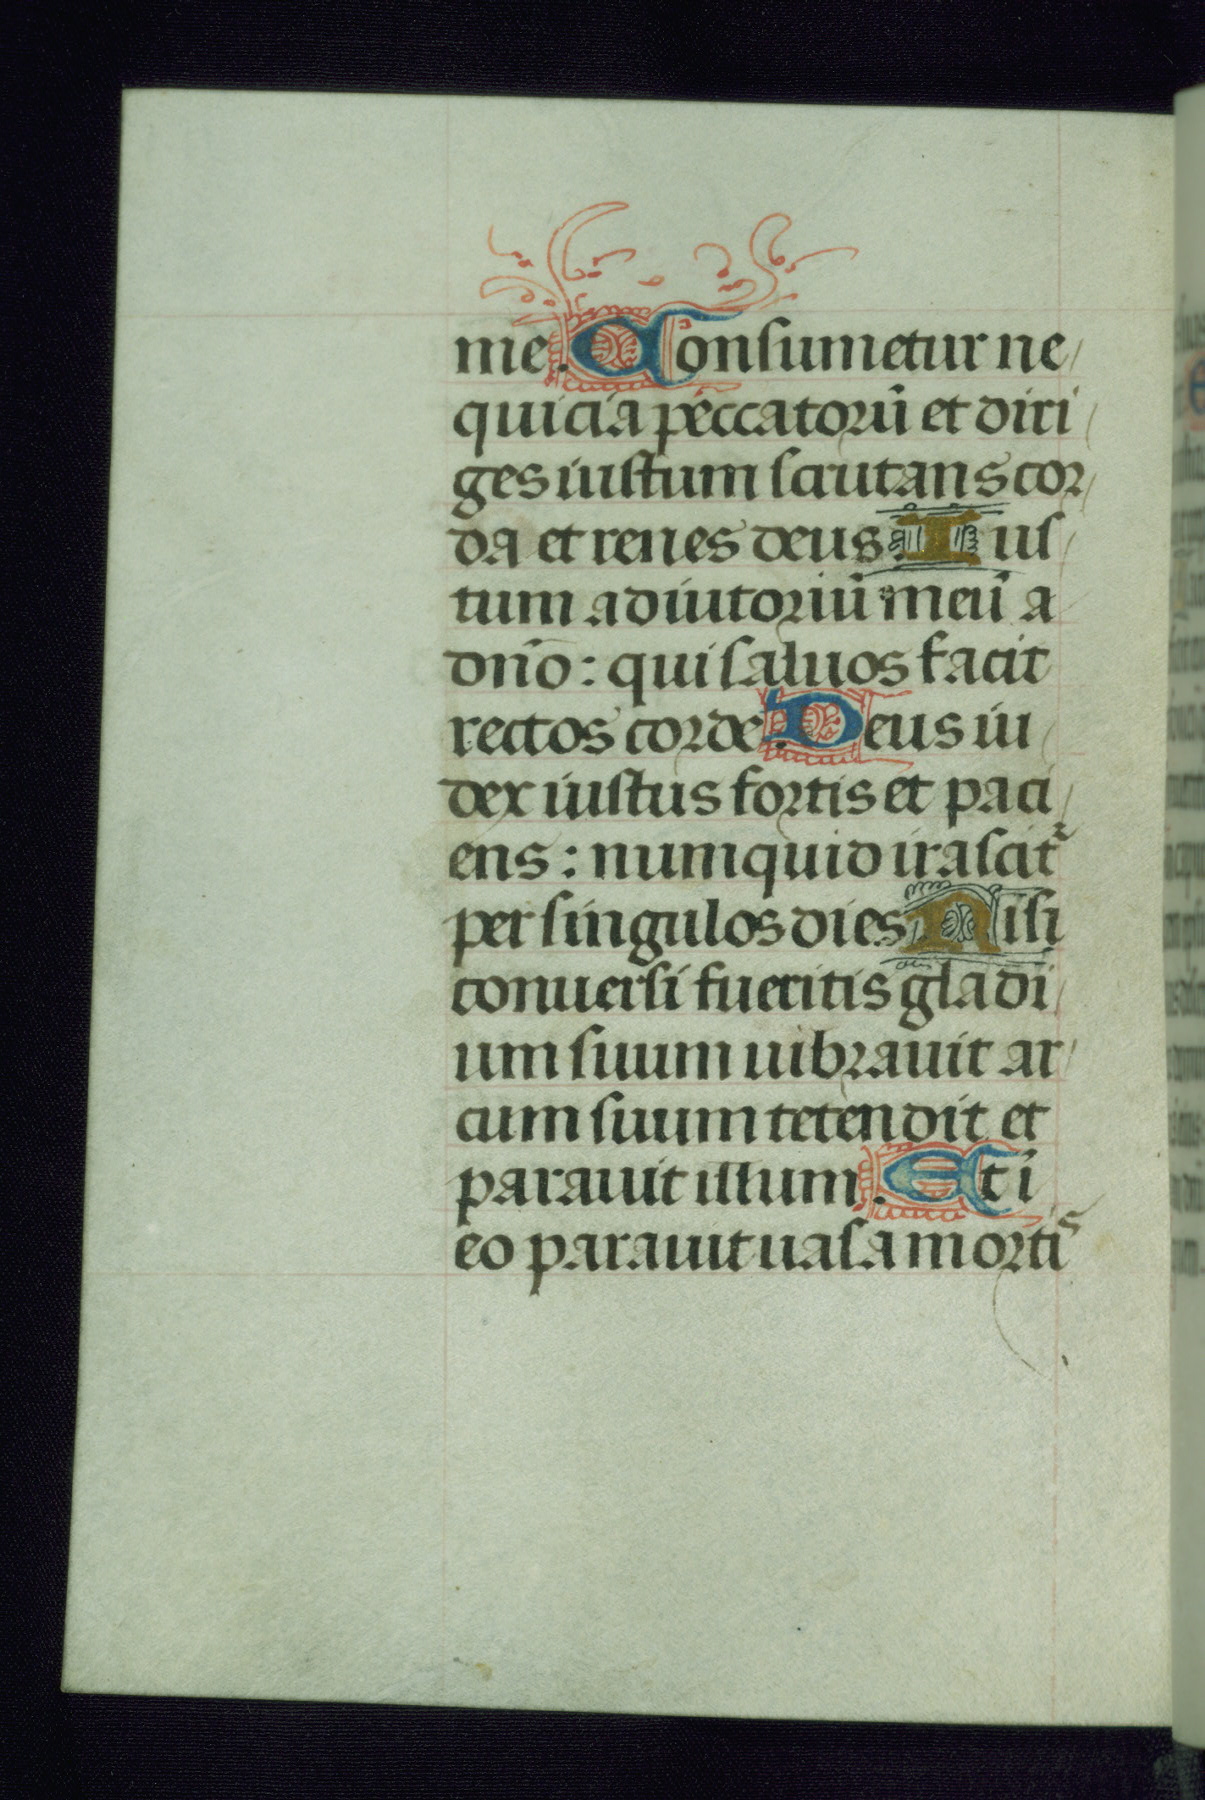 me. Consumetur ne
quicia peccatorū et diri
ges iustum scrutans cor
da et renes deus. Ius
tum adiutoriū meū a
dn̄o: qui saluos facit
rectos corde. Deus iu
dex iustus fortis et paci
ens: numquid irascit᷑
per singulos dies. Nisi
conuersi fueritis gladi
um suum uibrauit ar
cum suum tetendit et
parauit illum. Et ī
eo parauit uasa mortis